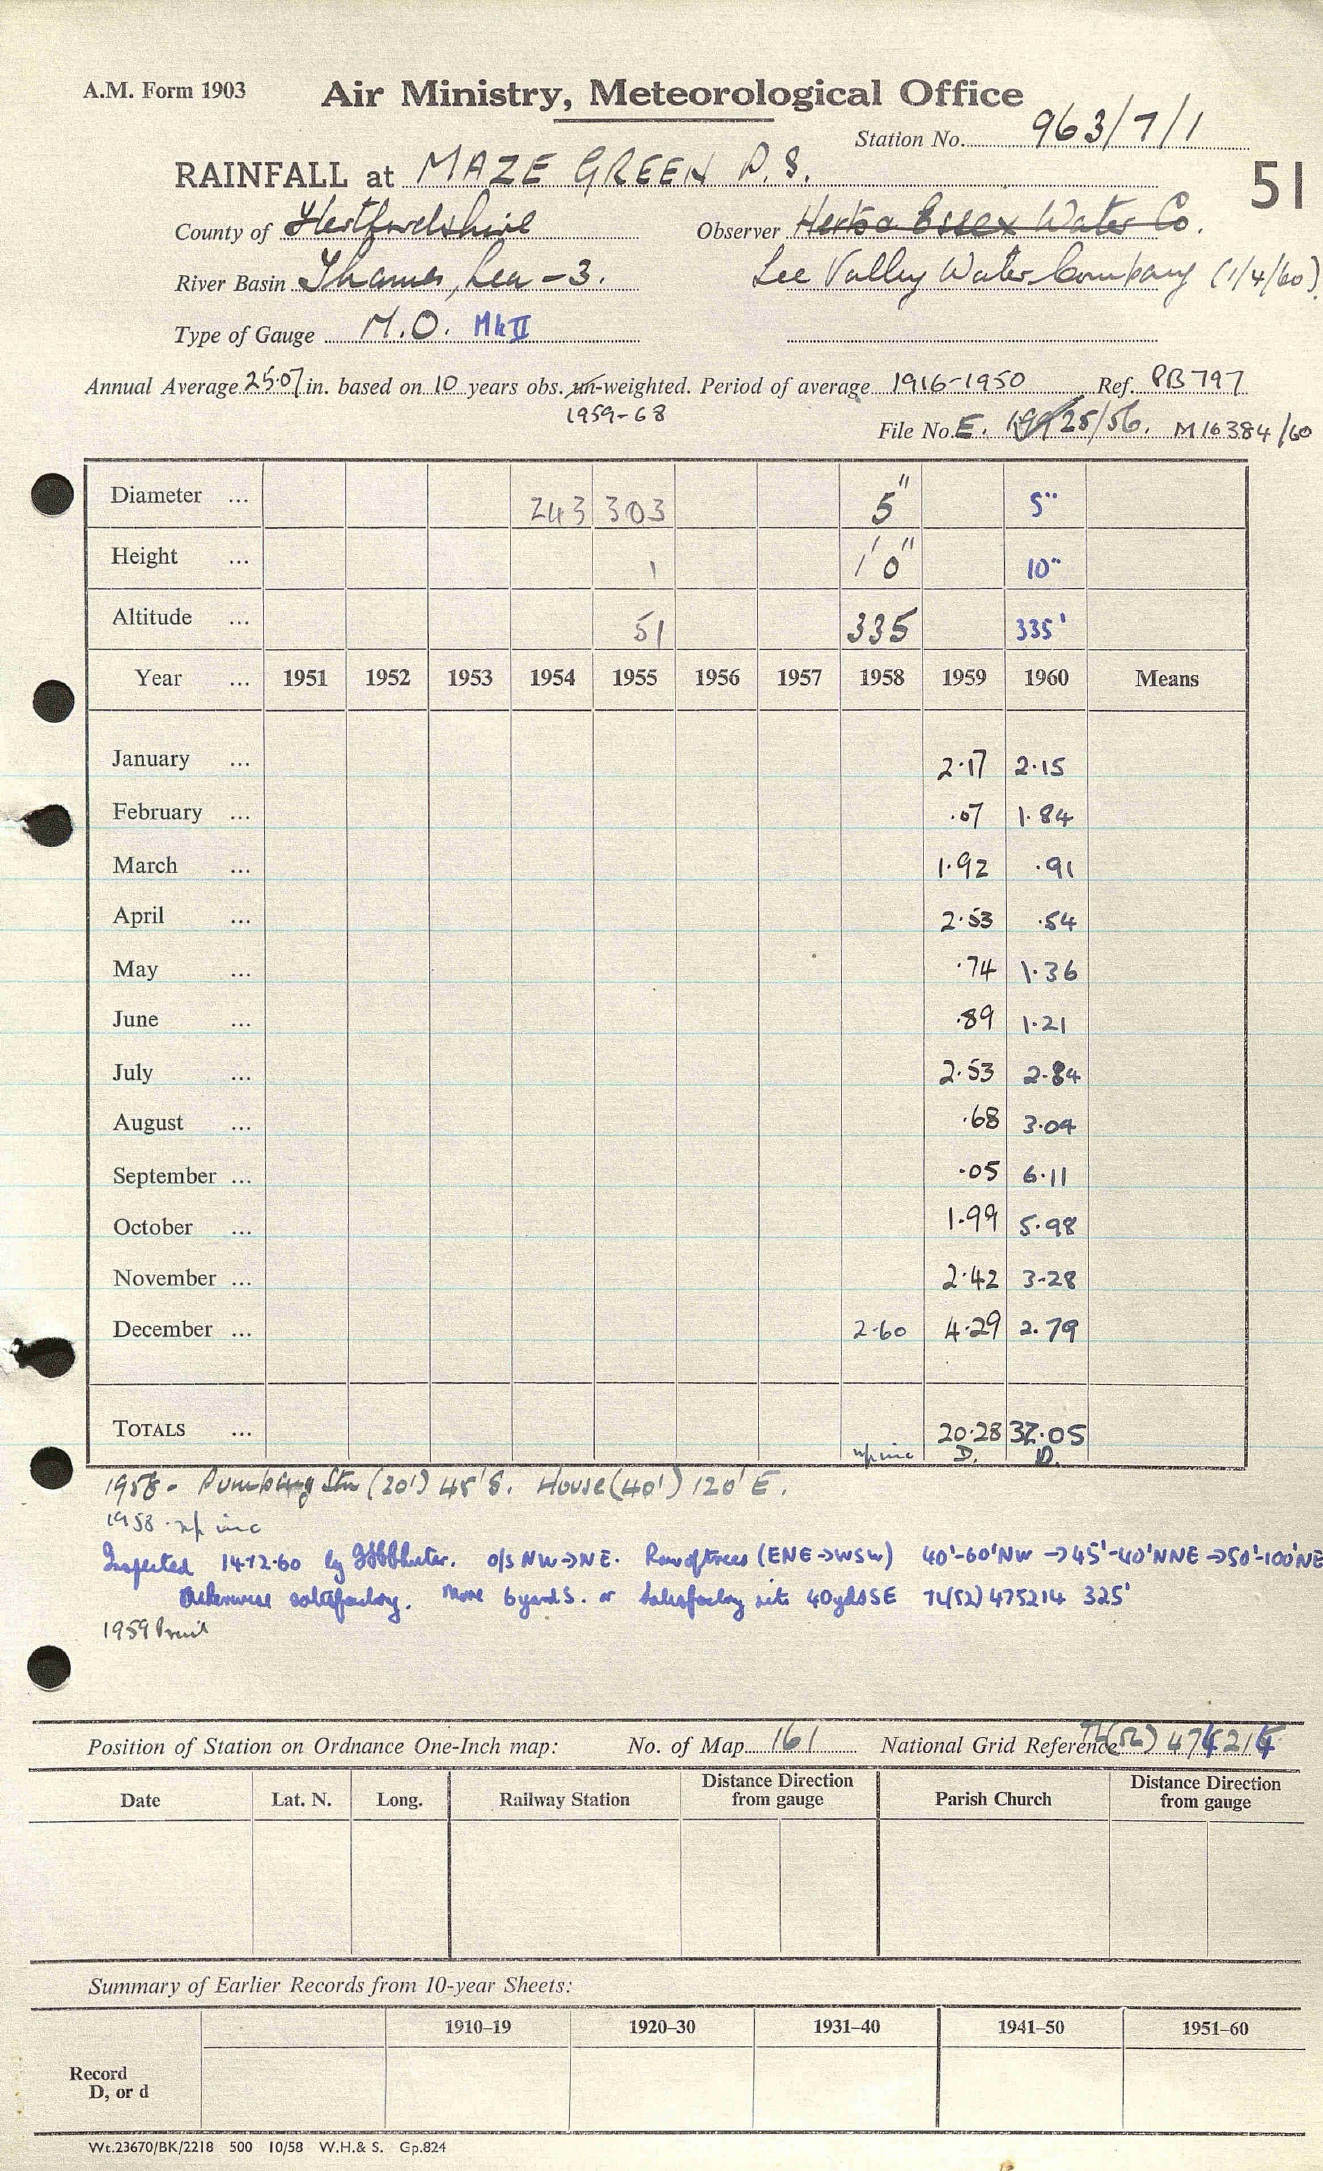 A.M. Form 1903 Air Ministry, Meteorological Office
Station No. 963/7/1
RAINFALL at MAZE GREEN P.S. 51
County of Hertfordshire Observer Herts & Essex Water Co.
River Basin Thames, Lea - 3. Lee Valley Water Company (1/4/60).
Type of Gauge M.O. Mk II
Annual Average 25.07 in. based on 10 years obs. un-weighted. Period of average 1916-1950 Ref. PB 797
1959-68
File No. E. 25/56. M16384/60
Diameter ... 243 303 5" 5"
Height ... 1 1' 0" 10"
Altitude ... 51 335 335'
Year ... 1951 1952 1953 1954 1955 1956 1957 1958 1959 1960 Means
January ... 2.17 2.15
February ... .07 1.84
March ... 1.92 .91
April ... 2.53 .54
May ... .74 1.36
June ... .89 1.21
July ... 2.53 2.84
August ... .68 3.04
September ... .05 6.11
October ... 1.99 5.98
November ... 2.42 3.28
December ... 2.60 4.29 2.79
TOTALS ... 20.28 32.05
inc D. D.
1958 - Pumping Stn (20') 45' S. House (40') 120' E.
1958 inc
Inspected 14.12.60 by o/s NW→NE. Row of trees (ENE→WSW) 40'-60' NW →45'-40' NNE →50'-100' NE
Otherwise satisfactory. Move 6 yards S. or satisfactory site 40 yds SE TL(52) 475214 325'
1959
Position of Station on Ordnance One-Inch map: No. of Map 161 National Grid Reference TL(52) 474214
Date Lat. N. Long. Railway Station Distance Direction from gauge Parish Church Distance Direction from gauge
Summary of Earlier Records from 10-year Sheets:
1910–19 1920–30 1931–40 1941–50 1951–60
Record
D, or d
Wt.23670/BK/2218 500 10/58 W.H.& S. Gp.824